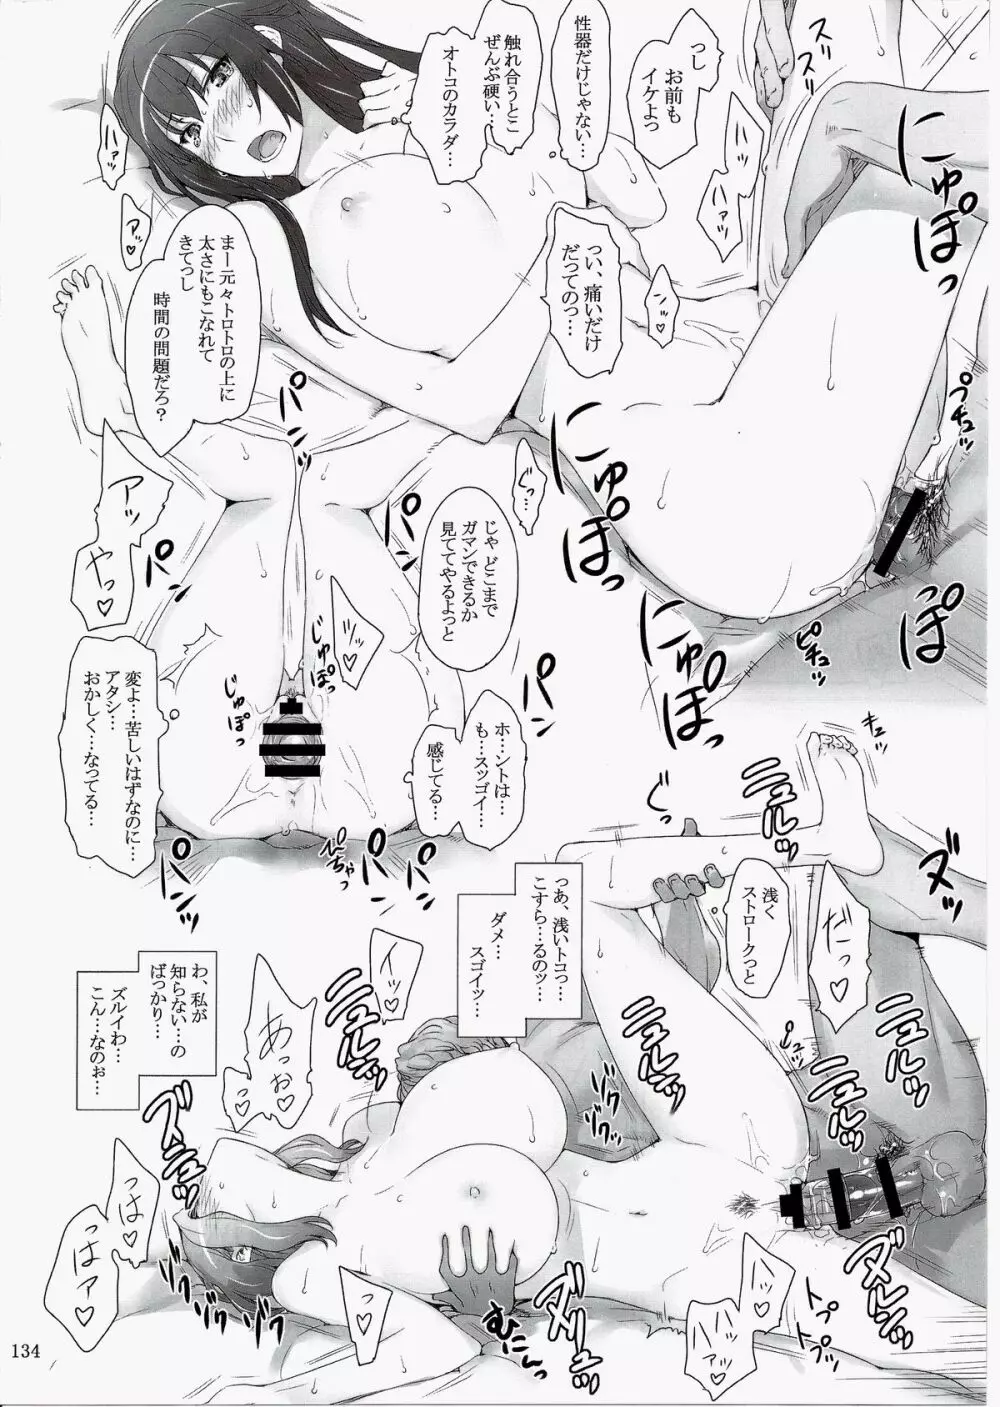 っし
お前も
イケよっ
性器だけじゃない…
触れ合うとこ
ぜんぶ硬い…
オトコのカラダ…
っい、痛いだけ
だってのっ…
まー元々トロトロの上に
太さにもこなれて
きてっし
時間の問題だろ?
ズリッ
ハァッ
ハァッ
アッ♡
ンッ♡
にゅぽっ
にゅぽっ
にゅぽっ
ぽっ
プチュッ
ピチュッ
パンッ
パンッ
パンッ
パンッ
パンッ
パンッ
ぐっ…
じゃ どこまで
ガマンできるか
見ててやるよっと
アッ
やっ♡
ツッ♡
じゅぽっ
じゅぽっ
変よ…苦しいはずなのに…
アタシ…
おかしく…なってる…
ホ…ントは…
も…スッゴイ…
感じてる…
キュッ
ぐっ
浅く
ストロークっと
だっ♡
っあ、浅いトコっ…
こすら…るのッ…
ダメ…
スゴイッ…
わ、私が
知らない…の
ばっかり…
ズルイわ…
こん…なのぉ…
イッ♡
あっ
ぉ♡
ニュルッ
ニュルルッ
ニュルルッ
ニュルルッ
ズニュッ
ゾクッ
ゾクッ
ゾクッ
ゾクッ
っはっ♡
っはァ♡
むにんっ
ズニュルッ
ヌルルッ
ハァッ♡
トプ
トプ
134